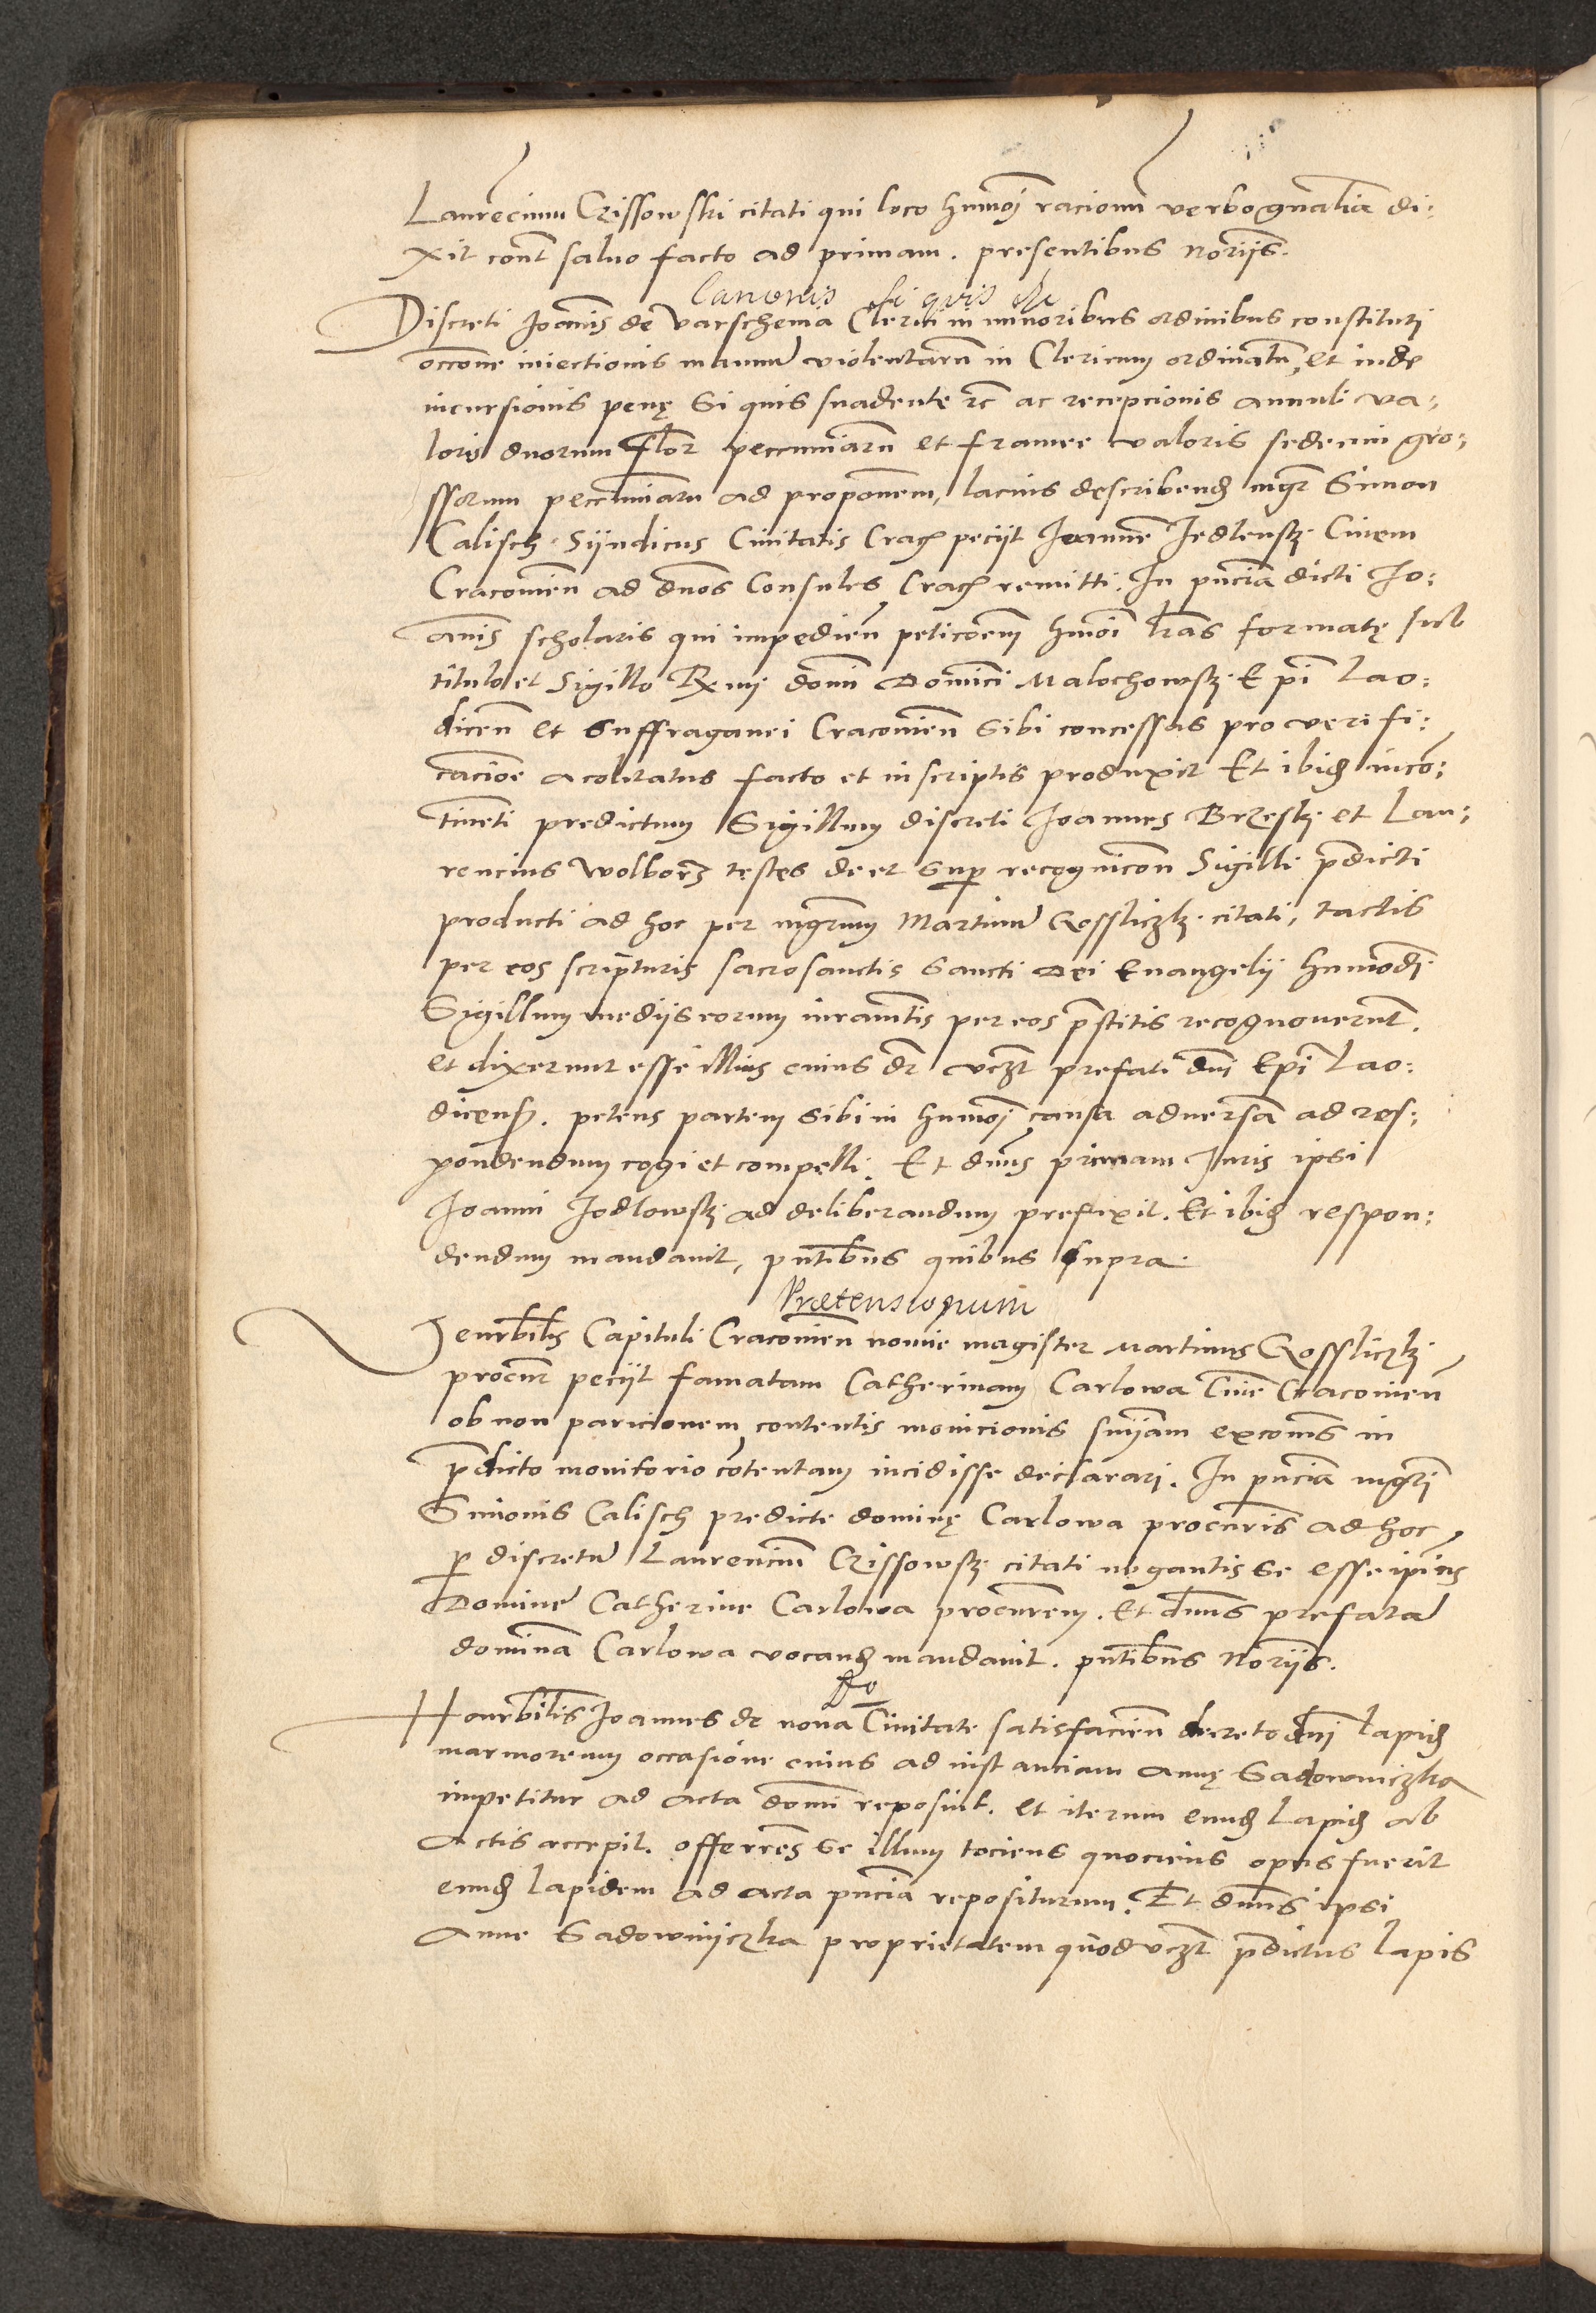 Laurēcium Crissowski citati qui loco hmōi racionū verbo gn̄alia di:
xit cont̄ saluo facto ad primam. presentibus Norijs.
Canonis si quis etc
Discreti Joān̄is de Varschema Clerici in minoribus ordinibus constituti
occōne iniectionis manuū violentarū in Clericum ordinatū, et inde
incursionis penę Si quis suadente etc ac recepcionis annuli va:
loris duorum Flor peccuniarū et framee valoris sedecim gro:
ssorum peccuniarū ad propōnem, lacius describend mgr̄ Simon
Calisch Sijndicus Ciuitatis Crac petijt Joannē Jedlensk Ciuem
Cracouien̄ ad dn̄os Consules Crac remitti. In pn̄cia dicti Jo:
anis scholaris qui impedien̄ peticōem hmōi lr̄as formatę sub
titulo et Sigillo Rx̄mi domī Dominici Malochowsk Epī Lao:
dicen̄ et Suffraganei Cracouien̄ Sibi concessas pro verifi:
cacioe acolitatus facto et in scriptis produxit Et ibid incō:
tineti predictum Sigillum discreti Joannes Brzesk et Lau:
rencius Wolborz testes de et sup recognicōn Sigilli p̄dicti
producti ad hoc per mgrm̄ Martinū Gossliczk citati, tactis
per eos scripturis sacrosanctis Sancti Dei Euangelij hmōdi
Sigillum medijs eorum iuramētis per eos p̄stitis recognouerunt.
et dixerunt esse illius cuius dr̄ vczt prefati dn̄i Epī Lao:
dicens. petens partem sibi in hmōi causa aduersā ad res:
pondendum cogi et compelli. Et dn̄us primam Juris ipsi
Joanni Jodlowsk ad deliberandum prefixit. Et ibid respon:
dendum mandauit, pn̄tibus quibus supra.
Prætensionum
Venrb̄ilis Capituli Cracouien̄ noīe magister Martinus Gossliczk
procur̄ petijt famatam Catherinam Carlowa Ciuē Cracouien̄
ob non paricionem contentis monicionis sn̄iam excoīs in
p̄dicto monitorio cōtentam incidisse declarari. In pn̄cia mgrī
Simonis Calisch predicte dominę Carlowa procuris ad hoc
p discretū Laurenciū Crissowsk citati negantis se esse ipīus
Domine Catherine Carlowa procurem. Et dn̄us prefatā
dominā Carlowa vocand mandauit. pn̄tibus Norijs.
Do
Honrb̄ilis Joannes de noua Ciuitate satisfacien̄ decreto dn̄i lapid
marmoreum occasione cuius ad instanciam Annę Sadowniczka
impetitur ad acta domī reposuit. et iterum eund lapid ab
Actis accepit. offerēs se illum tociens quociens opus fuerit
eund lapidem ad acta pn̄cia repositurum. Et dn̄us ipsi
Anne Sadownijczka proprietatem quod vczt p̄dictus lapis